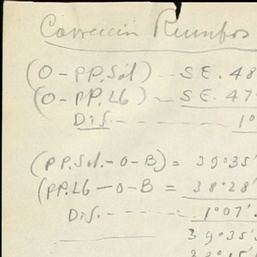 Corrección Rumbos
(O-P.P.Sol) - SE. 48
(O-P.P.L6) - SE. 47
Dif. - - - - 1°
(P.P.Sol.-O-B) = 39°35'
(P.P.L6-O-B = 38°28'
Dif. - - - - - 1°07'
39°35'